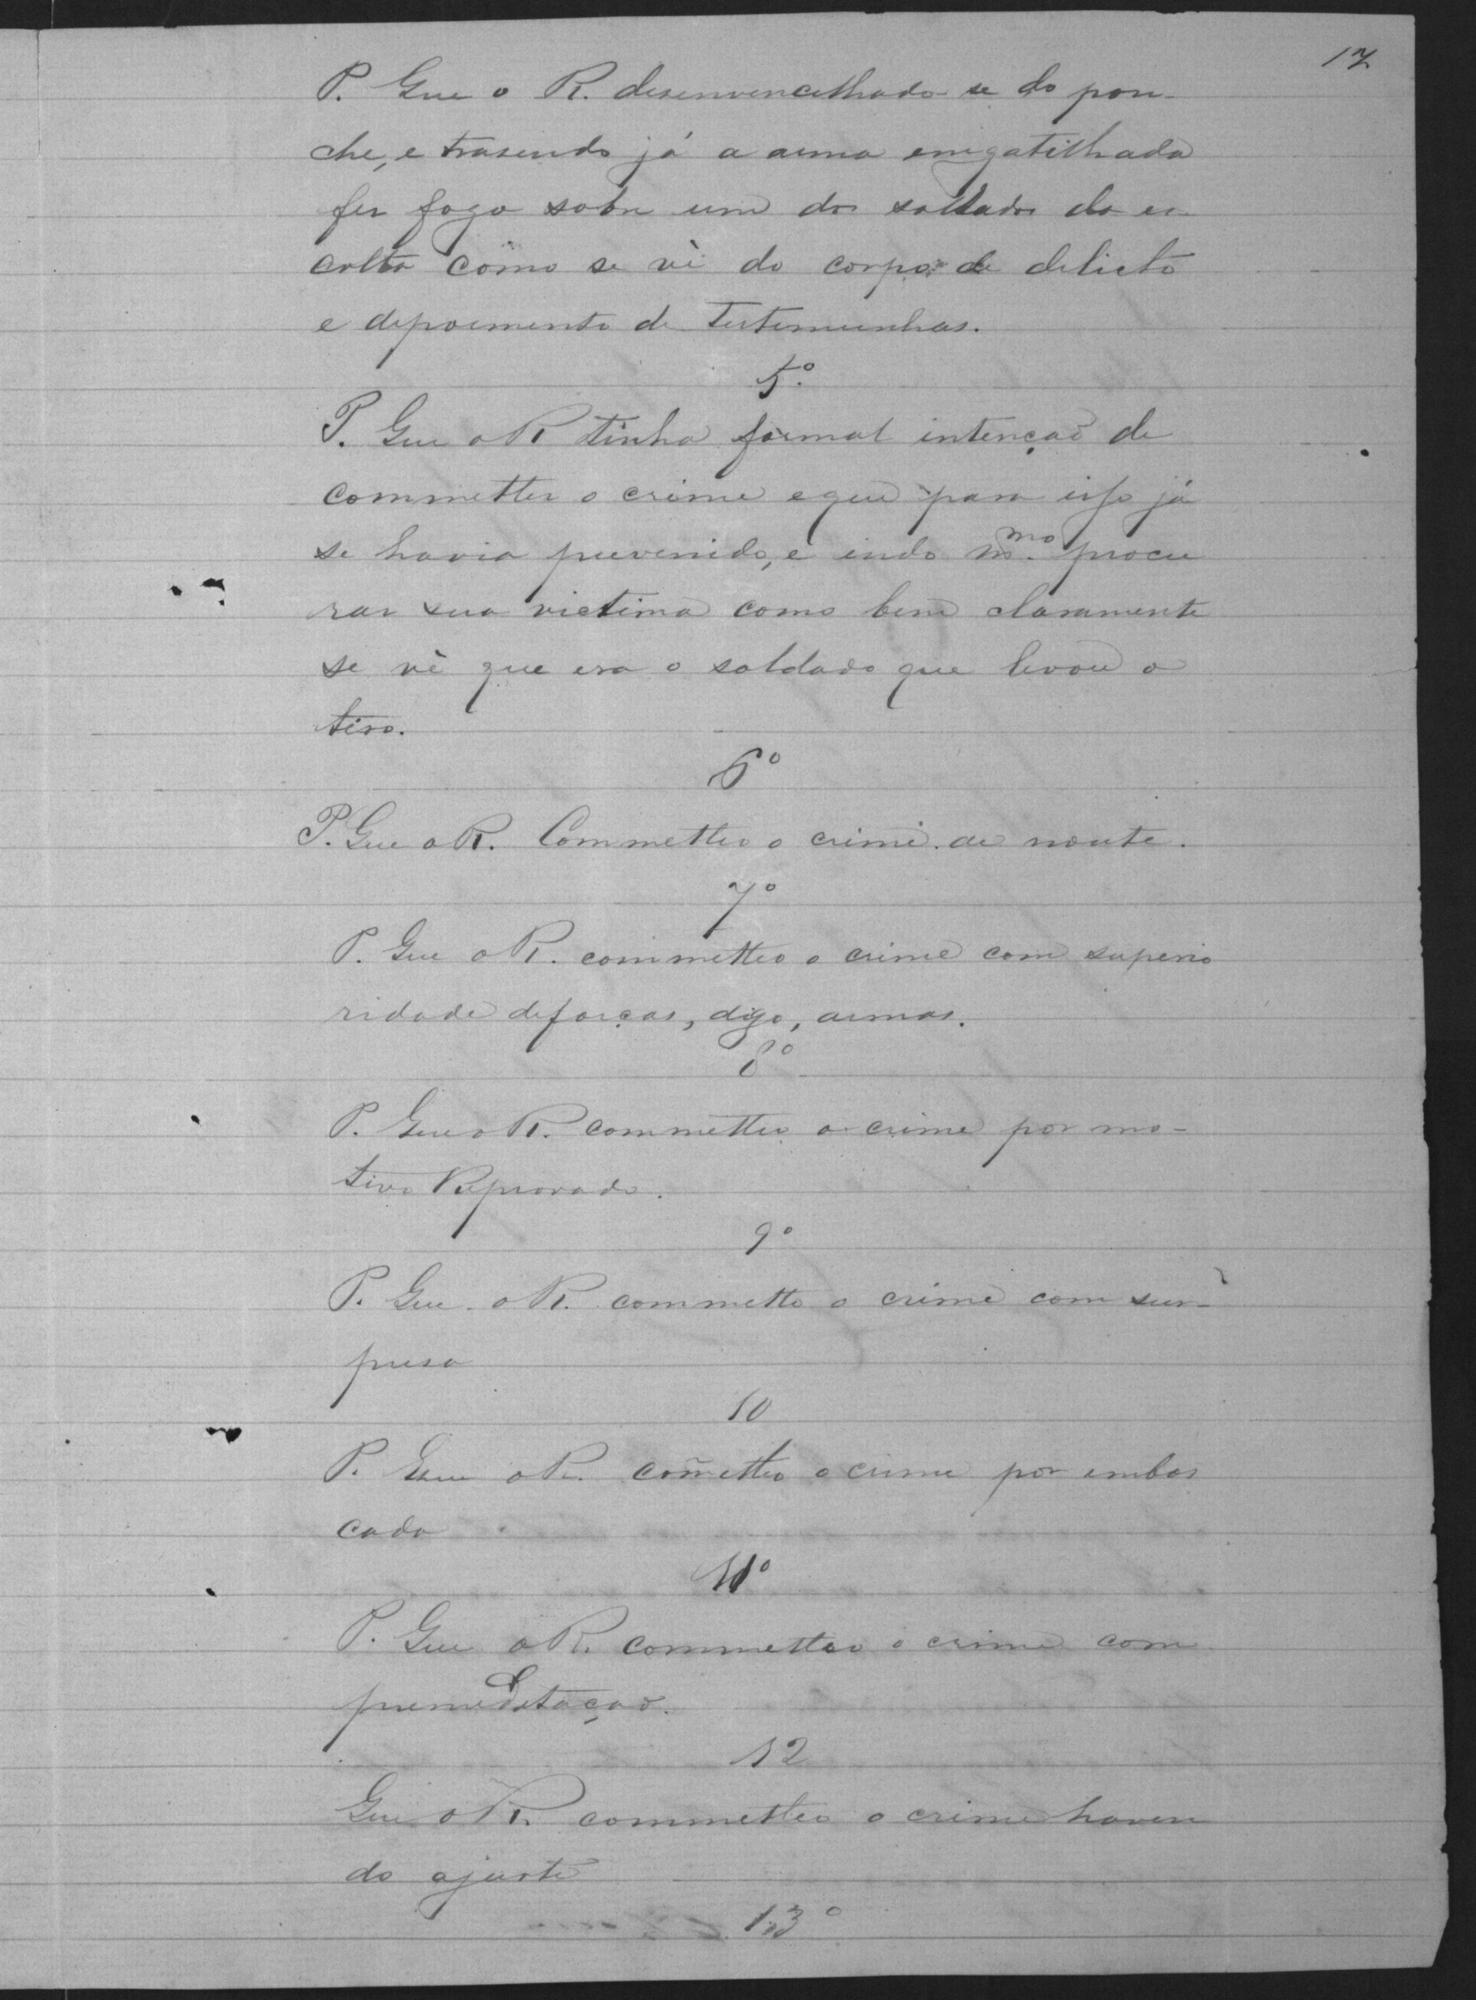 17
P. Que o R. desenvencilhado-se do pon-
che, e trasendo já a arma engatilhada
fes fogo sobre um dos soldados da es-
colta como se vê do corpo de delicto
e depoimento de testemunhas.
5º
P. Que o R tinha formal intenção de
commetter o crime e que para isso já
se havia prevenido, e indo mmo. procu
rar sua victima como bem claramente
se vê que era o soldado que levou o
tiro.
6º
P. Que o R. Commetteo o crime de noute.
7º
P. Que o R. commetteo o crime com superio
ridade de forças, digo, armas.
8º
P. Que o R. commetteo o crime por mo-
tivo Reprovado.
9º
P. Que o R. commetteo o crime com sur-
presa
10
P. Que o R. com̃etteo o crime por embos
cada
11º
P. Que o R. commetteo o crime com
premeditação.
12
Que o R. commetteo o crime haven
do ajuste
13º